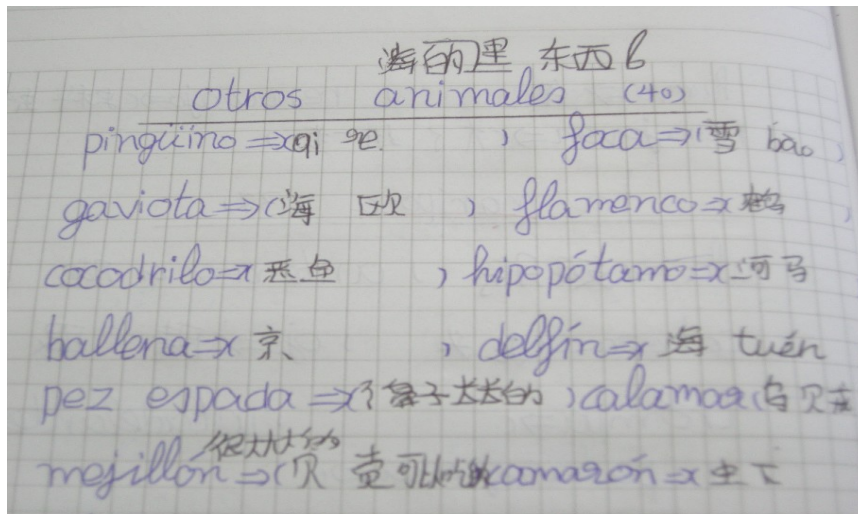 海的里 东西6
otros animales (40)
pingüino => (qi ge ) foca => (雪 bào )
gaviota => (海 区欠 ) flamenco => ( )
cocodrilo => ( 恶鱼 ) hipopótamo => (河马
ballena => ( 京 ) delfín => ( 海 tuén
pez espada => ( 子大长的 ) calamar (乌贝
很大大的
mejillón => (贝 壳可以吃 camarón => (